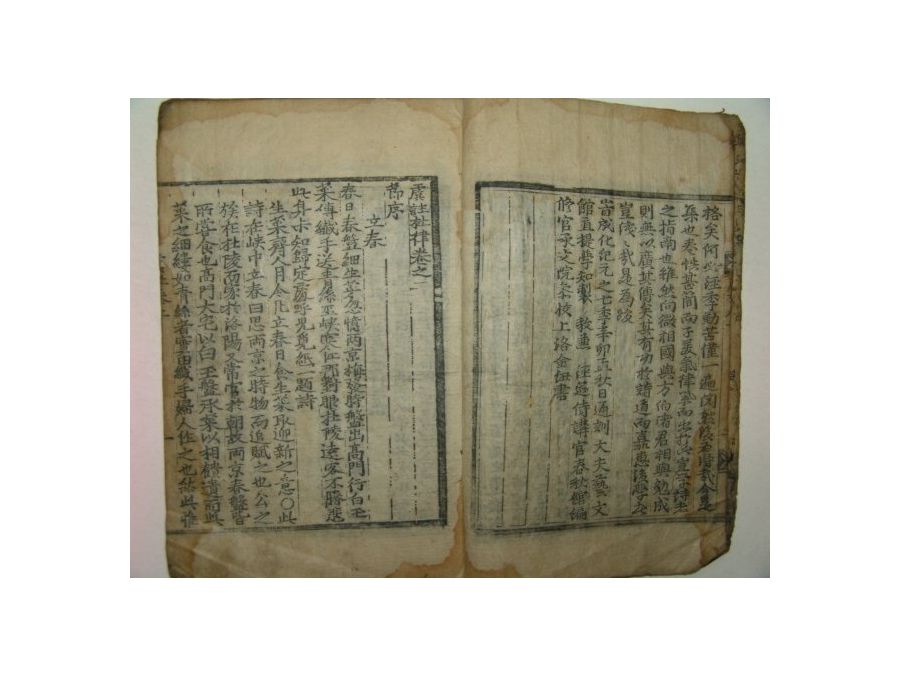 格矣何 勤苦僅一遍閱然後
集也卷帙甚簡而子美氣律 而出於此豈學詩
之指南也雖然向微相國與方伯諸君相與勉成
則無以廣其傳矣其有功於詩道而嘉惠後學也
豈淺〻哉是為跋
旹成化紀元之七季辛卯孟秋日通訓大夫藝文
館直提學知製 教兼 經筵侍講官春秋館編
修官承文院參校上洛金紐書
虞註杜律卷之一
節序
立春
春日春盤細生菜忽憶兩京梅發時盤出高門行白玉
菜傳纖手送青絲巫峽寒江那對眼杜陵遠客不勝悲
此身未知歸定處呼兒覓紙一題詩
生菜齊人月令凡立春日食生菜取迎新之意〇此
詩在峽中立春日思兩京之時物而追賦之也公之
族在杜陵而家於洛陽又嘗官於朝故兩京春盤皆
所嘗食也高門大宅以白玉盤承菜以相饋遺而此
菜之細縷如青絲者實由纖手婦人作之也然此雖